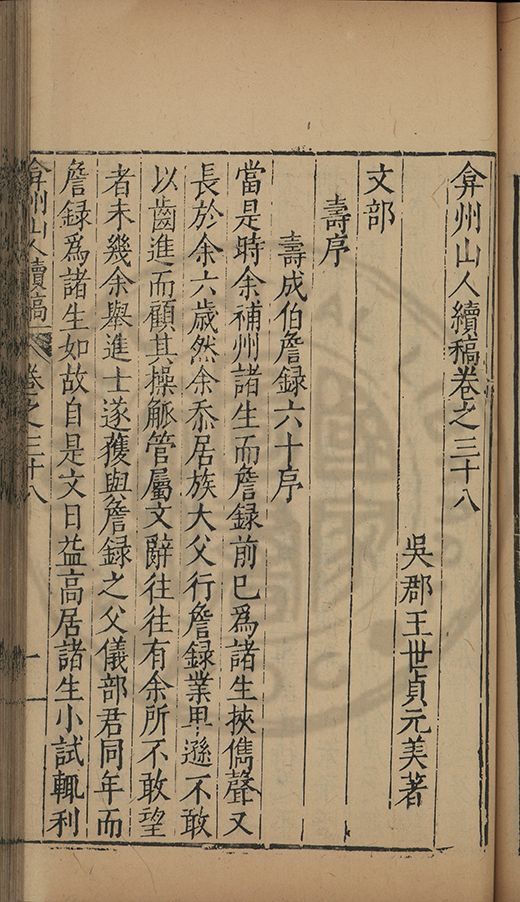 弇州山人續稿卷之三十八
吳郡王世貞元美著
文部
壽序
壽成伯詹録六十序
當是時余補州諸生而詹録前已爲諸生挾儁聲又
長於余六歲然余忝居族大父行詹録業畢遜不敢
以齒進而顧其操觚管屬文辭往往有余所不敢望
者未幾余舉進士遂獲與詹録之父儀部君同年而
詹録爲諸生如故自是文日益高居諸生小試輒利
弇州山人續稿 卷之三十八 一